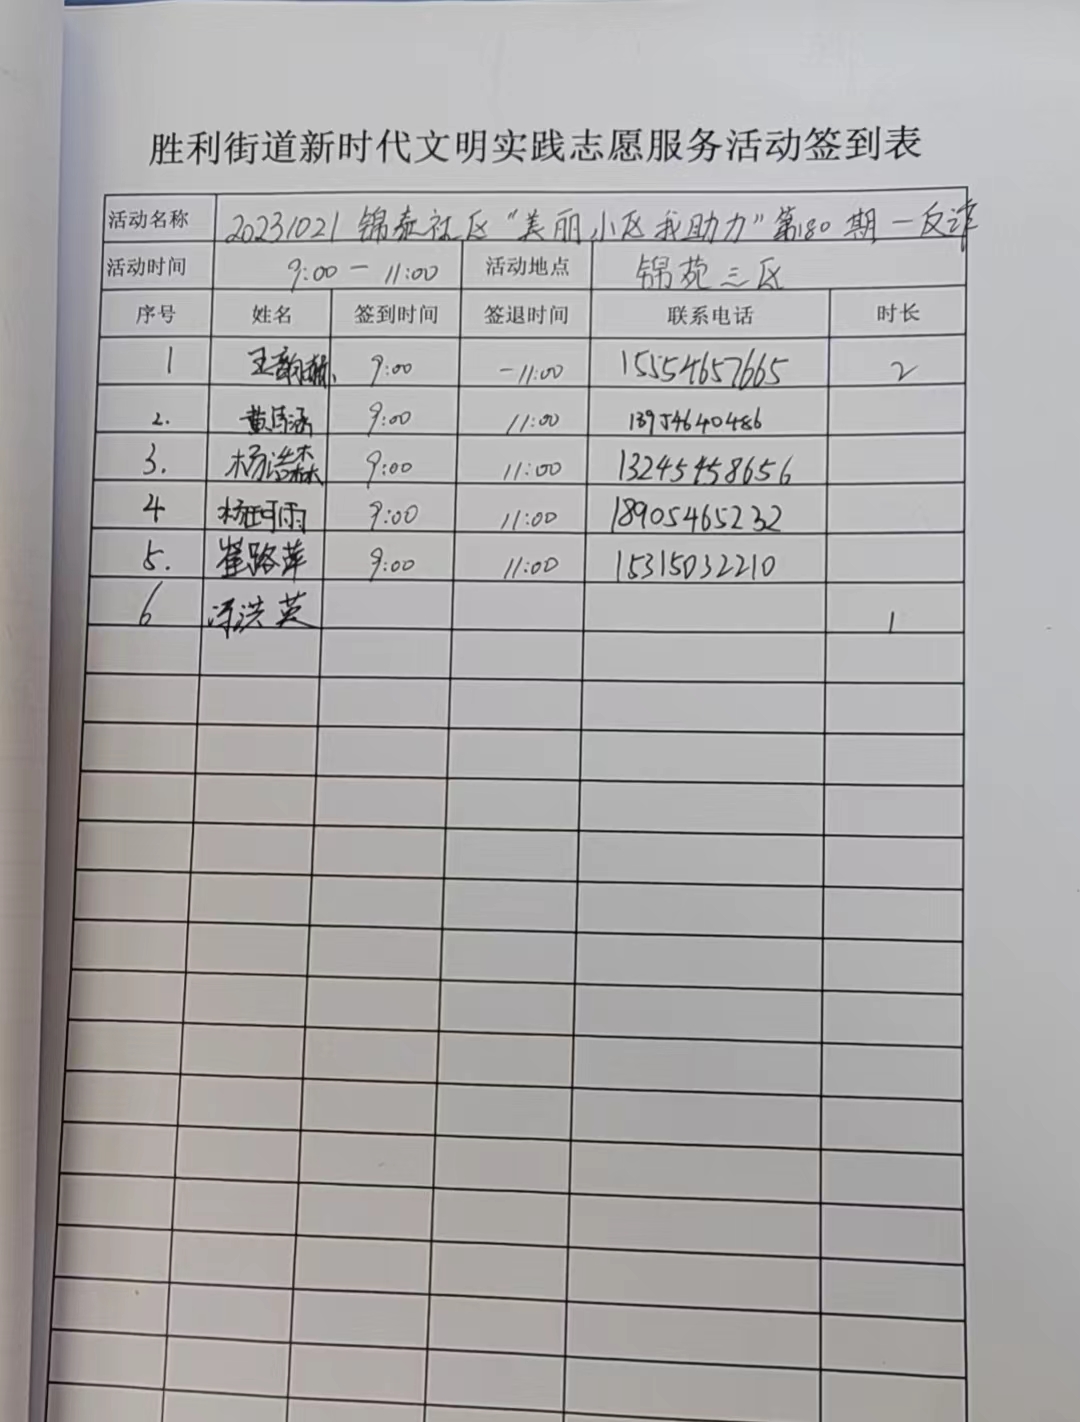 胜利街道新时代文明实践志愿服务活动签到表
活动名称 20231021 锦泰社区“美丽小区我助力”第180期—反诈
活动时间 9:00 — 11:00 活动地点 锦苑三区
序号 姓名 签到时间 签退时间 联系电话 时长
1 王韵 9:00 -11:00 15554657665 2
2. 黄诗涵 9:00 11:00 13954640486
3. 杨浩森 9:00 11:00 13245458656
4 杨珂雨 9:00 11:00 18905465232
5. 崔路萍 9:00 11:00 15315032210
6 洪英 1